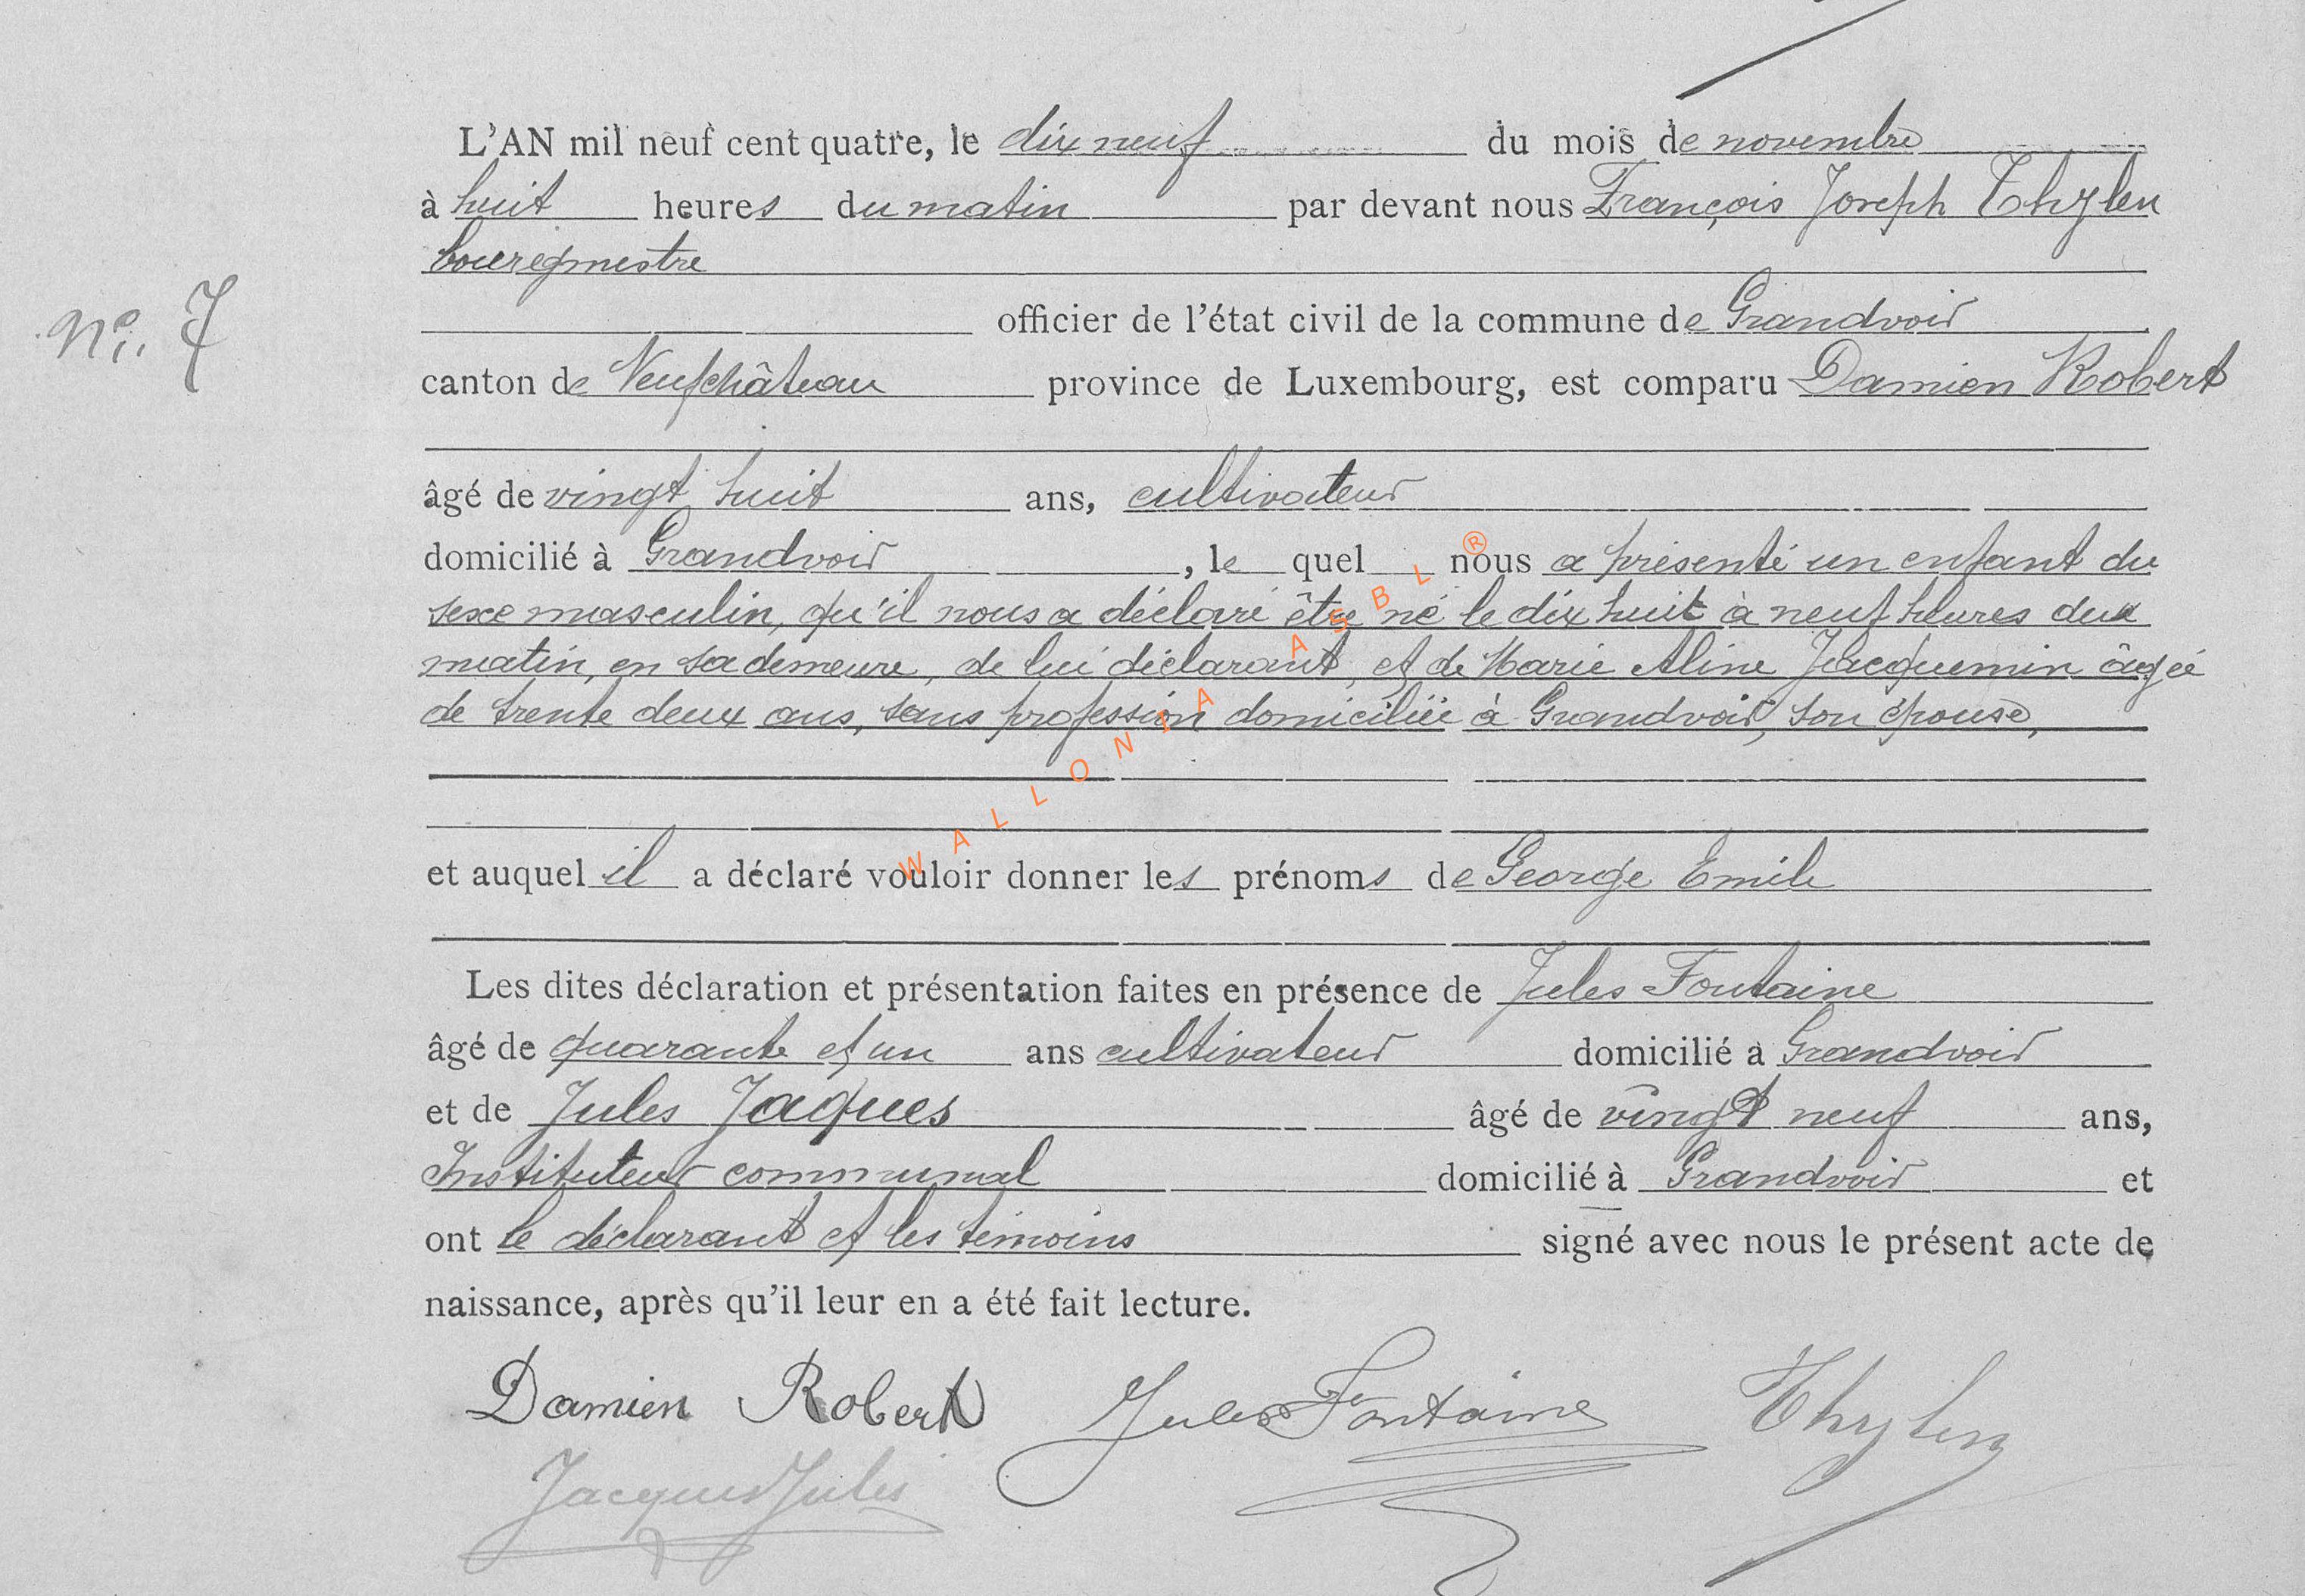 L'AN mil neuf cent quatre, le dix neuf du mois de novembre
à huit heures du matin par devant nous François Joseph Thylen
bourgmestre
officier de l'état civil de la commune de Grandvoir
No. 7
canton de Neufchâteau province de Luxembourg, est comparu Damien Robert
âgé de vingt huit ans, cultivateur
domicilié à Grandvoir, le quel nous a présenté un enfant du
sexe masculin, qu'il nous a déclaré être né le dix huit à neuf heures du
matin, en sa demeure, de lui déclarant, et de Marie Aline Jacquemin âgée
de trente deux ans, sans profession domiciliée à Grandvoir, son épouse,
et auquel il a déclaré vouloir donner les prénoms de George Emile
Les dites déclaration et présentation faites en présence de Jules Fontaine
âgé de quarante et un ans cultivateur domicilié à Grandvoir
et de Jules Jaques âgé de vingt neuf ans,
Instituteur communal domicilié à Grandvoir et
ont le déclarant et les témoins signé avec nous le présent acte de
naissance, après qu'il leur en a été fait lecture.
Damien Robert Jules Fontaine Thylen
Jacques Jules
WALLONIA ASBL ®